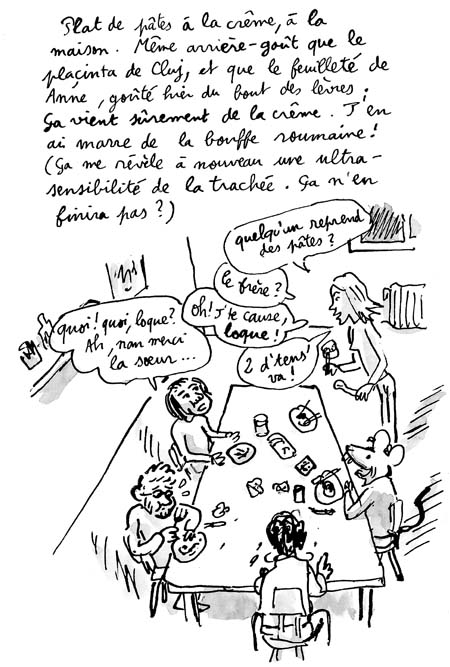 Plat de pâtes à la crême, à la
maison. Même arrière-goût que le
plaçinta de Cluj, et que le feuilleté de
Anne, goûté hier du bout des lèvres.
Ça vient sûrement de la crême. J'en
ai marre de la bouffe roumaine !
(Ça me révèle à nouveau une ultra-
sensibilité de la trachée. Ça n'en
finira pas ?)
quelqu'un reprend
des pâtes ?
le frère ?
oh ! J'te cause,
loque !
2 d'tens'
va !
quoi ! quoi, loque ?
Ah, nan merci
la sœur...